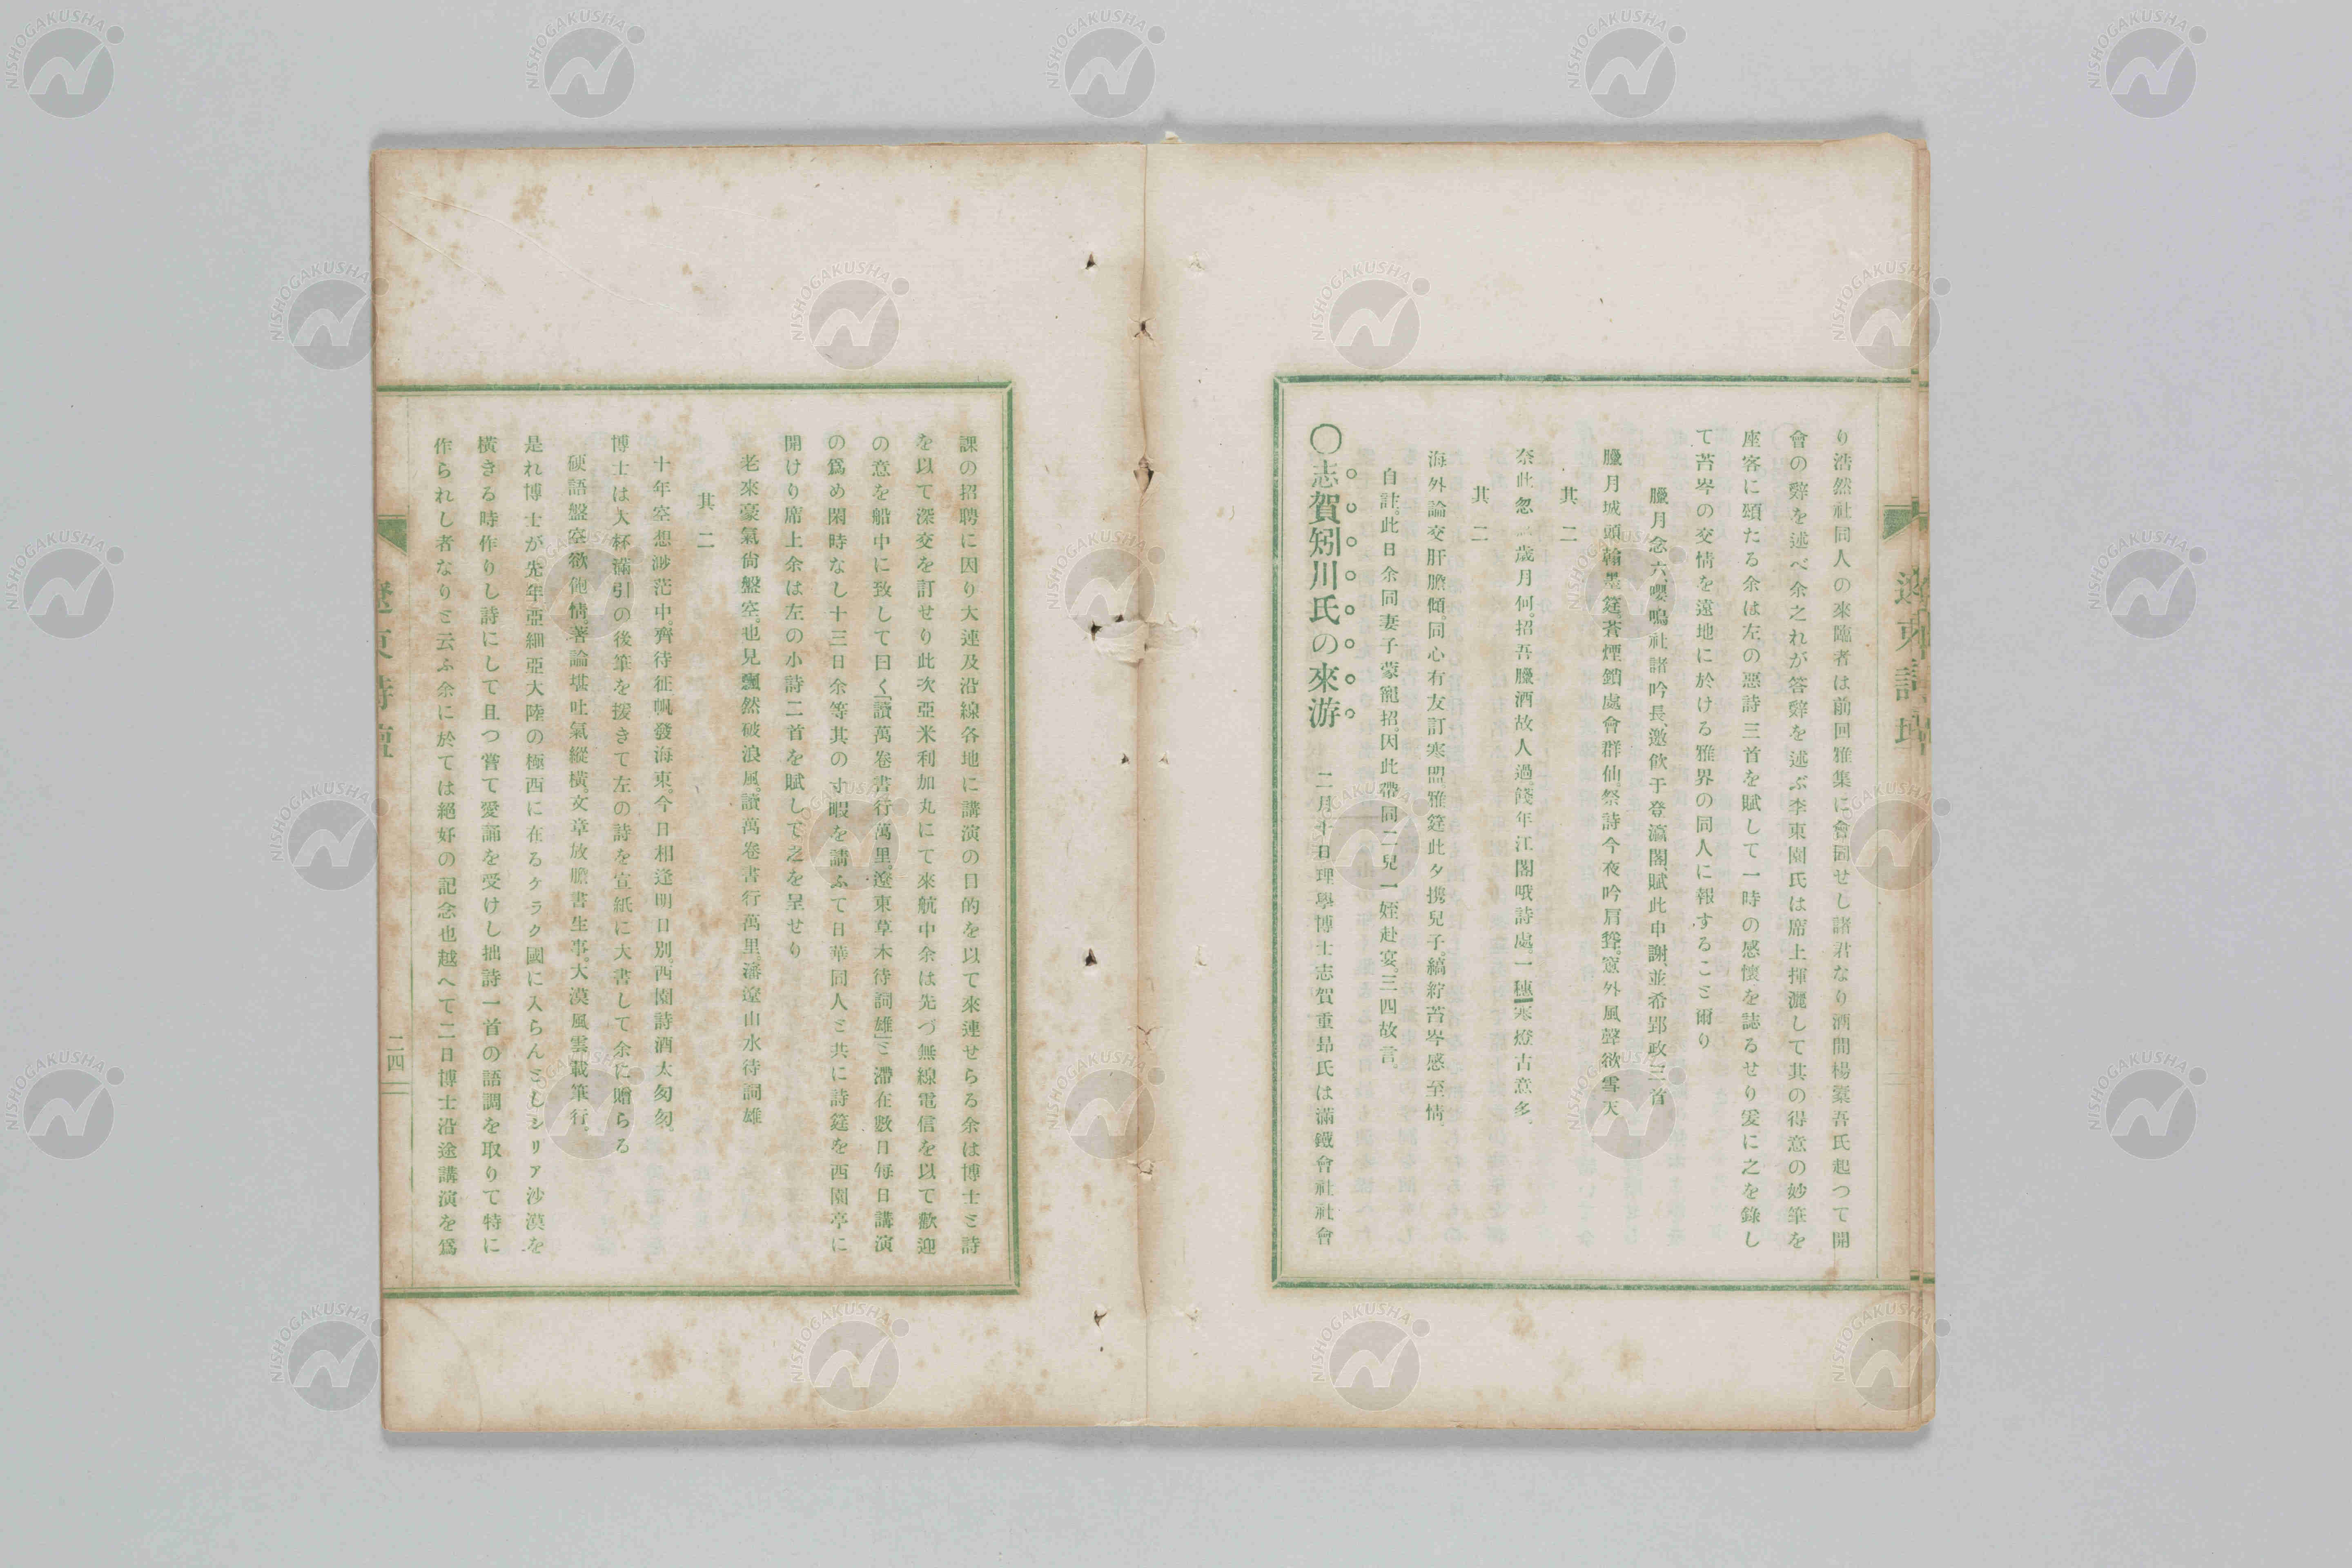 り浩然社同人の來臨者は前回雅集に會同せし諸君なり酒間楊槖吾氏起つて開
會の辭を述べ余之れが答辭を述ぶ李東園氏は席上揮灑して其の得意の妙筆を
座客に頒たる余は左の惡詩三首を賦して一時の感懷を誌るせり爰に之を錄し
て苔岑の交情を遠地に於ける雅界の同人に報すること爾り
臘月念六、嚶鳴社諸吟長、邀飮于登瀛閣、賦此申謝、並希郢政、三首
臘月城頭翰墨筵。蒼煙鎖處會群仙。祭詩今夜吟肩聳。窓外風聲欲雪天
其二
奈此忽々歲月何。招吾臘酒故人過。餞年江閣哦詩處。一穗寒燈古意多。
其二
海外論交肝膽傾。同心有友訂寒盟。雅筵此夕携兒子。縞紵苔岑感至情。
自註。此日余同妻子蒙寵招。因此帶同二兒一姪赴宴。三四故言。
〇志賀矧川氏の來游 二月十日理學博士志賀重昻氏は滿鐵會社社會
遼東詩壇
課の招聘に因り大連及沿線各地に講演の目的を以て來連せらる余は博士と詩
を以て深交を訂せり此次亞米利加丸にて來航中余は先づ無線電信を以て歡迎
の意を船中に致して曰く「讀萬卷書行萬里。遼東草木待詞雄」と滯在數日每日講演
の爲め閑時なし十三日余等其の寸暇を請ふて日華同人と共に詩筵を西園亭に
開けり席上余は左の小詩二首を賦して之を呈せり
老來豪氣尙盤空。也見飄然破浪風。讀萬卷書行萬里。瀋遼山水待詞雄
其二
十年空想渺茫中。齊待征帆發海東。今日相逢明日別。西園詩酒太匆匆。
博士は大杯滿引の後筆を援きて左の詩を宣紙に大書して余に贈らる
硬語盤空欲飽情。著論堪吐氣縱橫。文章放膽書生事。大漠風雲載筆行。
是れ博士が先年亞細亞大陸の極西に在るケラク國に入らんとしシリア沙漠を
橫きる時作りし詩にして且つ嘗て愛誦を受けし拙詩一首の語調を取りて特に
作られし者なりと云ふ余に於ては絕好の記念也越へて二日博士沿途講演を爲
遼東詩壇
二四
NISHOGAKUSHA